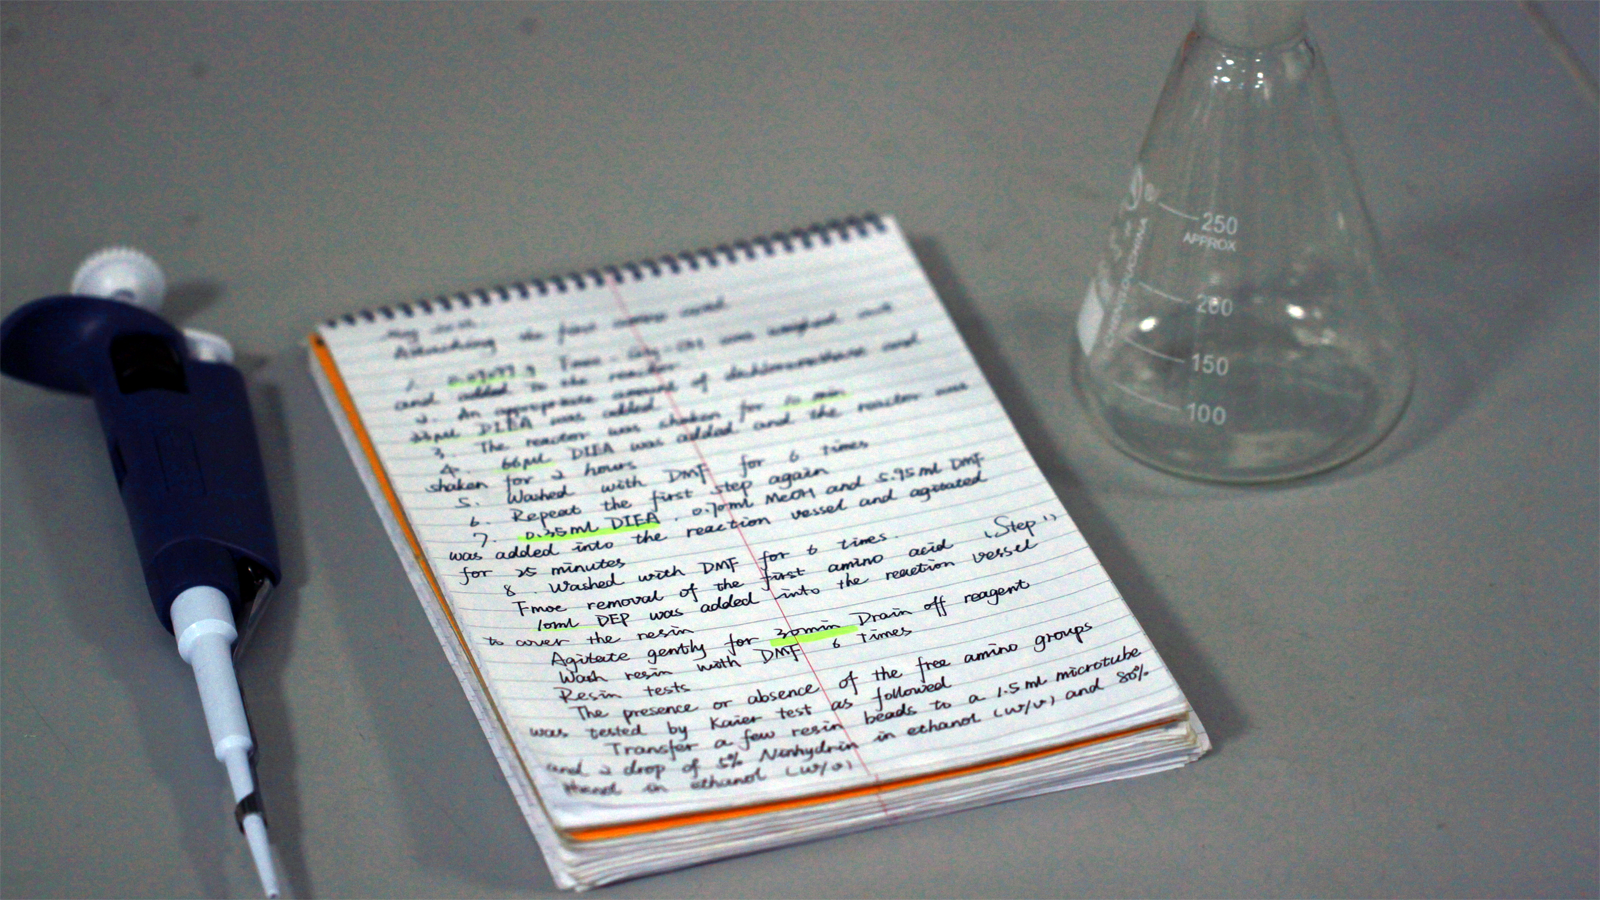 Attaching the first amino acid
1. g Fmoc-Gly-OH was weighed out
and added to the reactor
2. An appropriate amount of dichloromethane and
33μl DIEA was added
3. The reactor was shaken for 10 min
4. 66μl DIEA was added and the reactor was
shaken for 2 hours
5. Washed with DMF for 6 times
6. Repeat the first step again
7. 0.35ml DIEA. 0.70ml MeOH and 5.95ml DMF
was added into the reaction vessel and agitated
for 25 minutes
8. Washed with DMF for 6 times.
Fmoc removal of the first amino acid (Step 1)
10ml DEP was added into the reaction vessel
to cover the resin
Agitate gently for 30min Drain off reagent
Wash resin with DMF 6 Times
Resin tests
The presence or absence of the free amino groups
was tested by Kaier test as followed
Transfer a few resin beads to a 1.5ml microtube
and 2 drop of 5% Ninhydrin in ethanol (w/v) and 80%
in ethanol (w/v)
250
APPROX
200
150
100